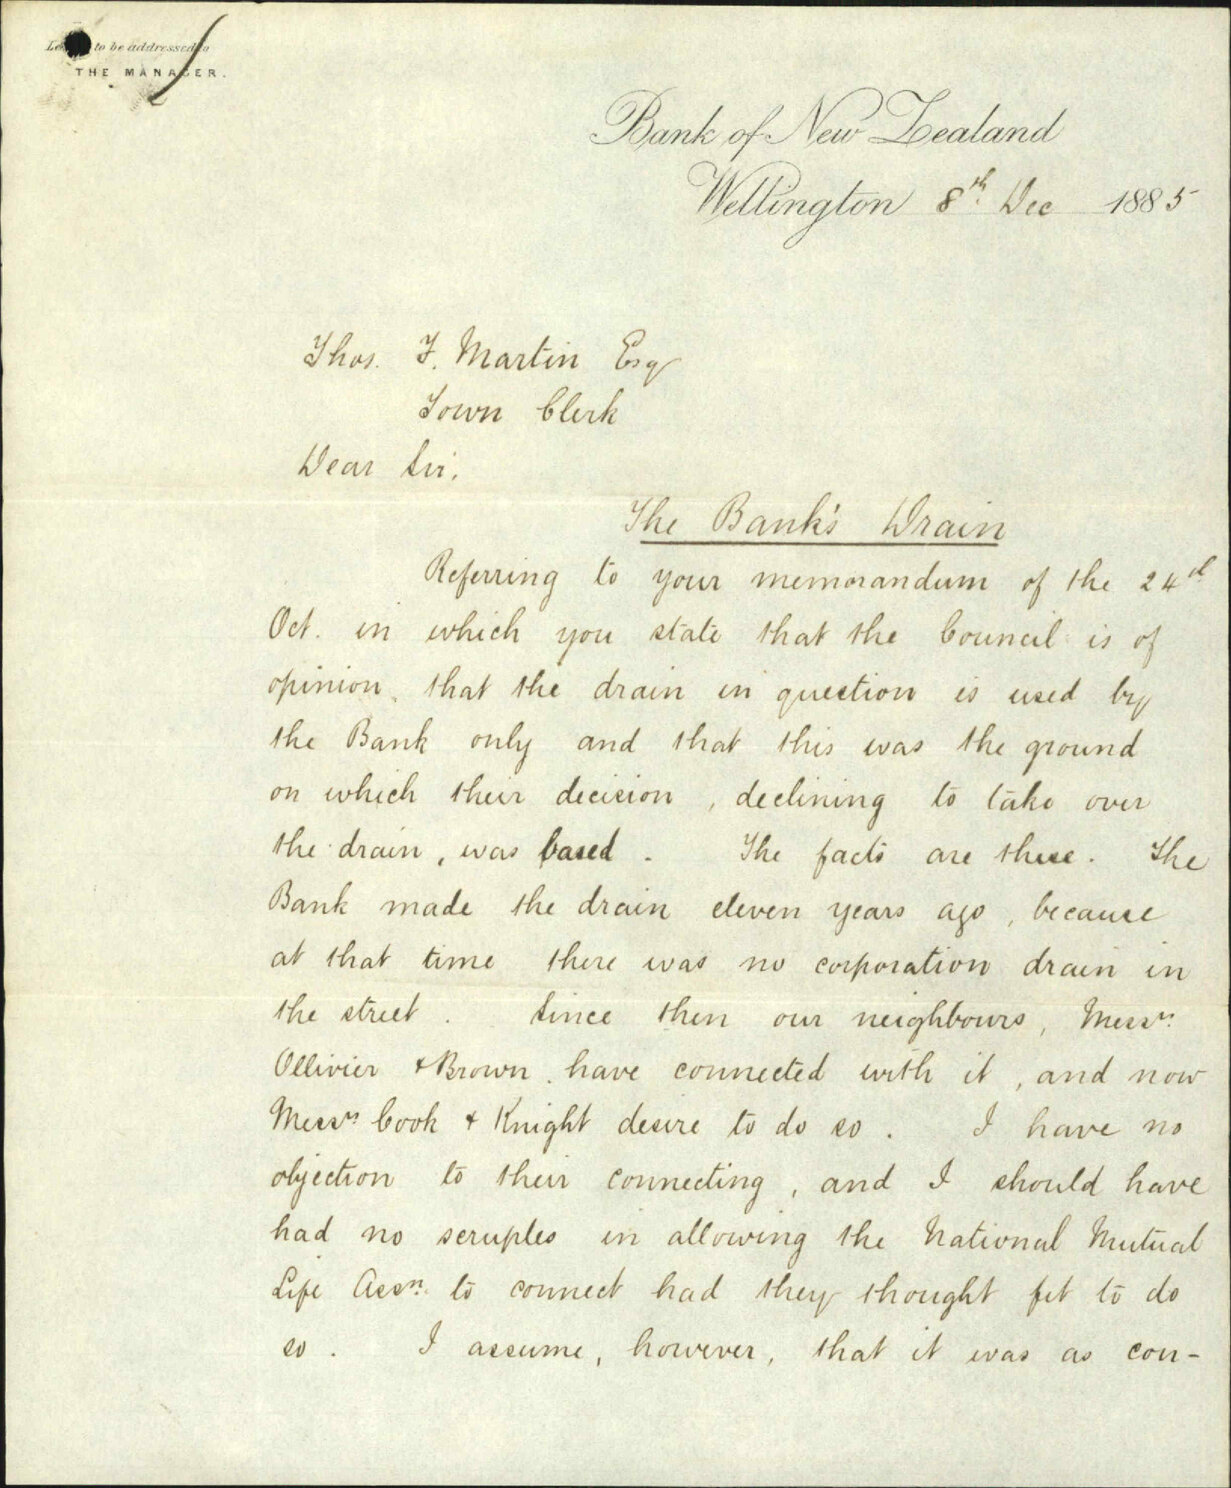 Letters to be addressed to
THE MANAGER.
Bank of New Zealand
Wellington 8th Dec 1885
Thos. F. Martin Esq
Town Clerk
Dear Sir,
The Bank's Drain
Referring to your memorandum of the 24th
Oct. in which you state that the Council is of
opinion, that the drain in question is used by
the Bank only and that this was the ground
on which their decision, declining to take over
the drain, was based. The facts are these. The
Bank made the drain eleven years ago, because
at that time there was no corporation drain in
the street. Since then our neighbours, Messrs.
Ollivier & Brown have connected with it, and now
Messrs Cook & Knight desire to do so. I have no
objection to their connecting, and I should have
had no scruples in allowing the National Mutual
Life Assn. to connect had they thought fit to do
so. I assume, however, that it was as con-